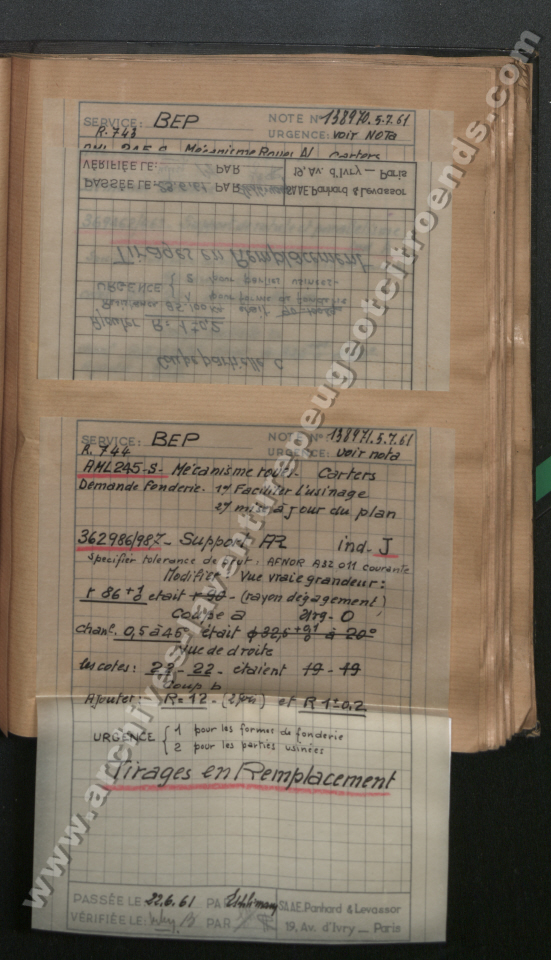 SERVICE: BEP NOTE N° 138970.5.7.61
R.743 URGENCE: voir NOTA
Mécanisme Roues AV Carters
VÉRIFIÉE LE: PAR 19, Av. d'Ivry — Paris
PASSÉE LE: 23.6.61 PAR S.A.A.E. Panhard & Levassor
Tirages en Remplacement
URGENCE { 2 pour parties usinées
1 pour forme de fonderie
était
Ajouter R = 1±0,2
Coupe partielle C
SERVICE: BEP NOTE N° 138971.5.7.61
R. 744 URGENCE: voir nota
AML245-S- Mécanisme roues- Carters
Demande fonderie. 1°/ Faciliter l'usinage
2°/ mise à jour du plan
362986/987- Support AR ind- J
Spécifier tolerance de brut: AFNOR A32 011 courante
Modifier Vue vraie grandeur:
r 86 +1/0 était r 90 - (rayon dégagement)
Coupe a O
chanf. 0,5 à 45° était ϕ 32,5 à 20°
Vue de droite
les cotes: 22 - 22 - étaient 19 - 19
Coup b
Ajouter: R=12 - (2 fois) et R 1±0,2
URGENCE { 1 pour les formes de fonderie
2 pour les parties usinées
Tirages en Remplacement
PASSÉE LE 22.6.61 PAR S.A.A.E. Panhard & Levassor
VÉRIFIÉE LE: PAR 19, Av. d'Ivry — Paris
www.archives-laventurepeugeotcitroends.com